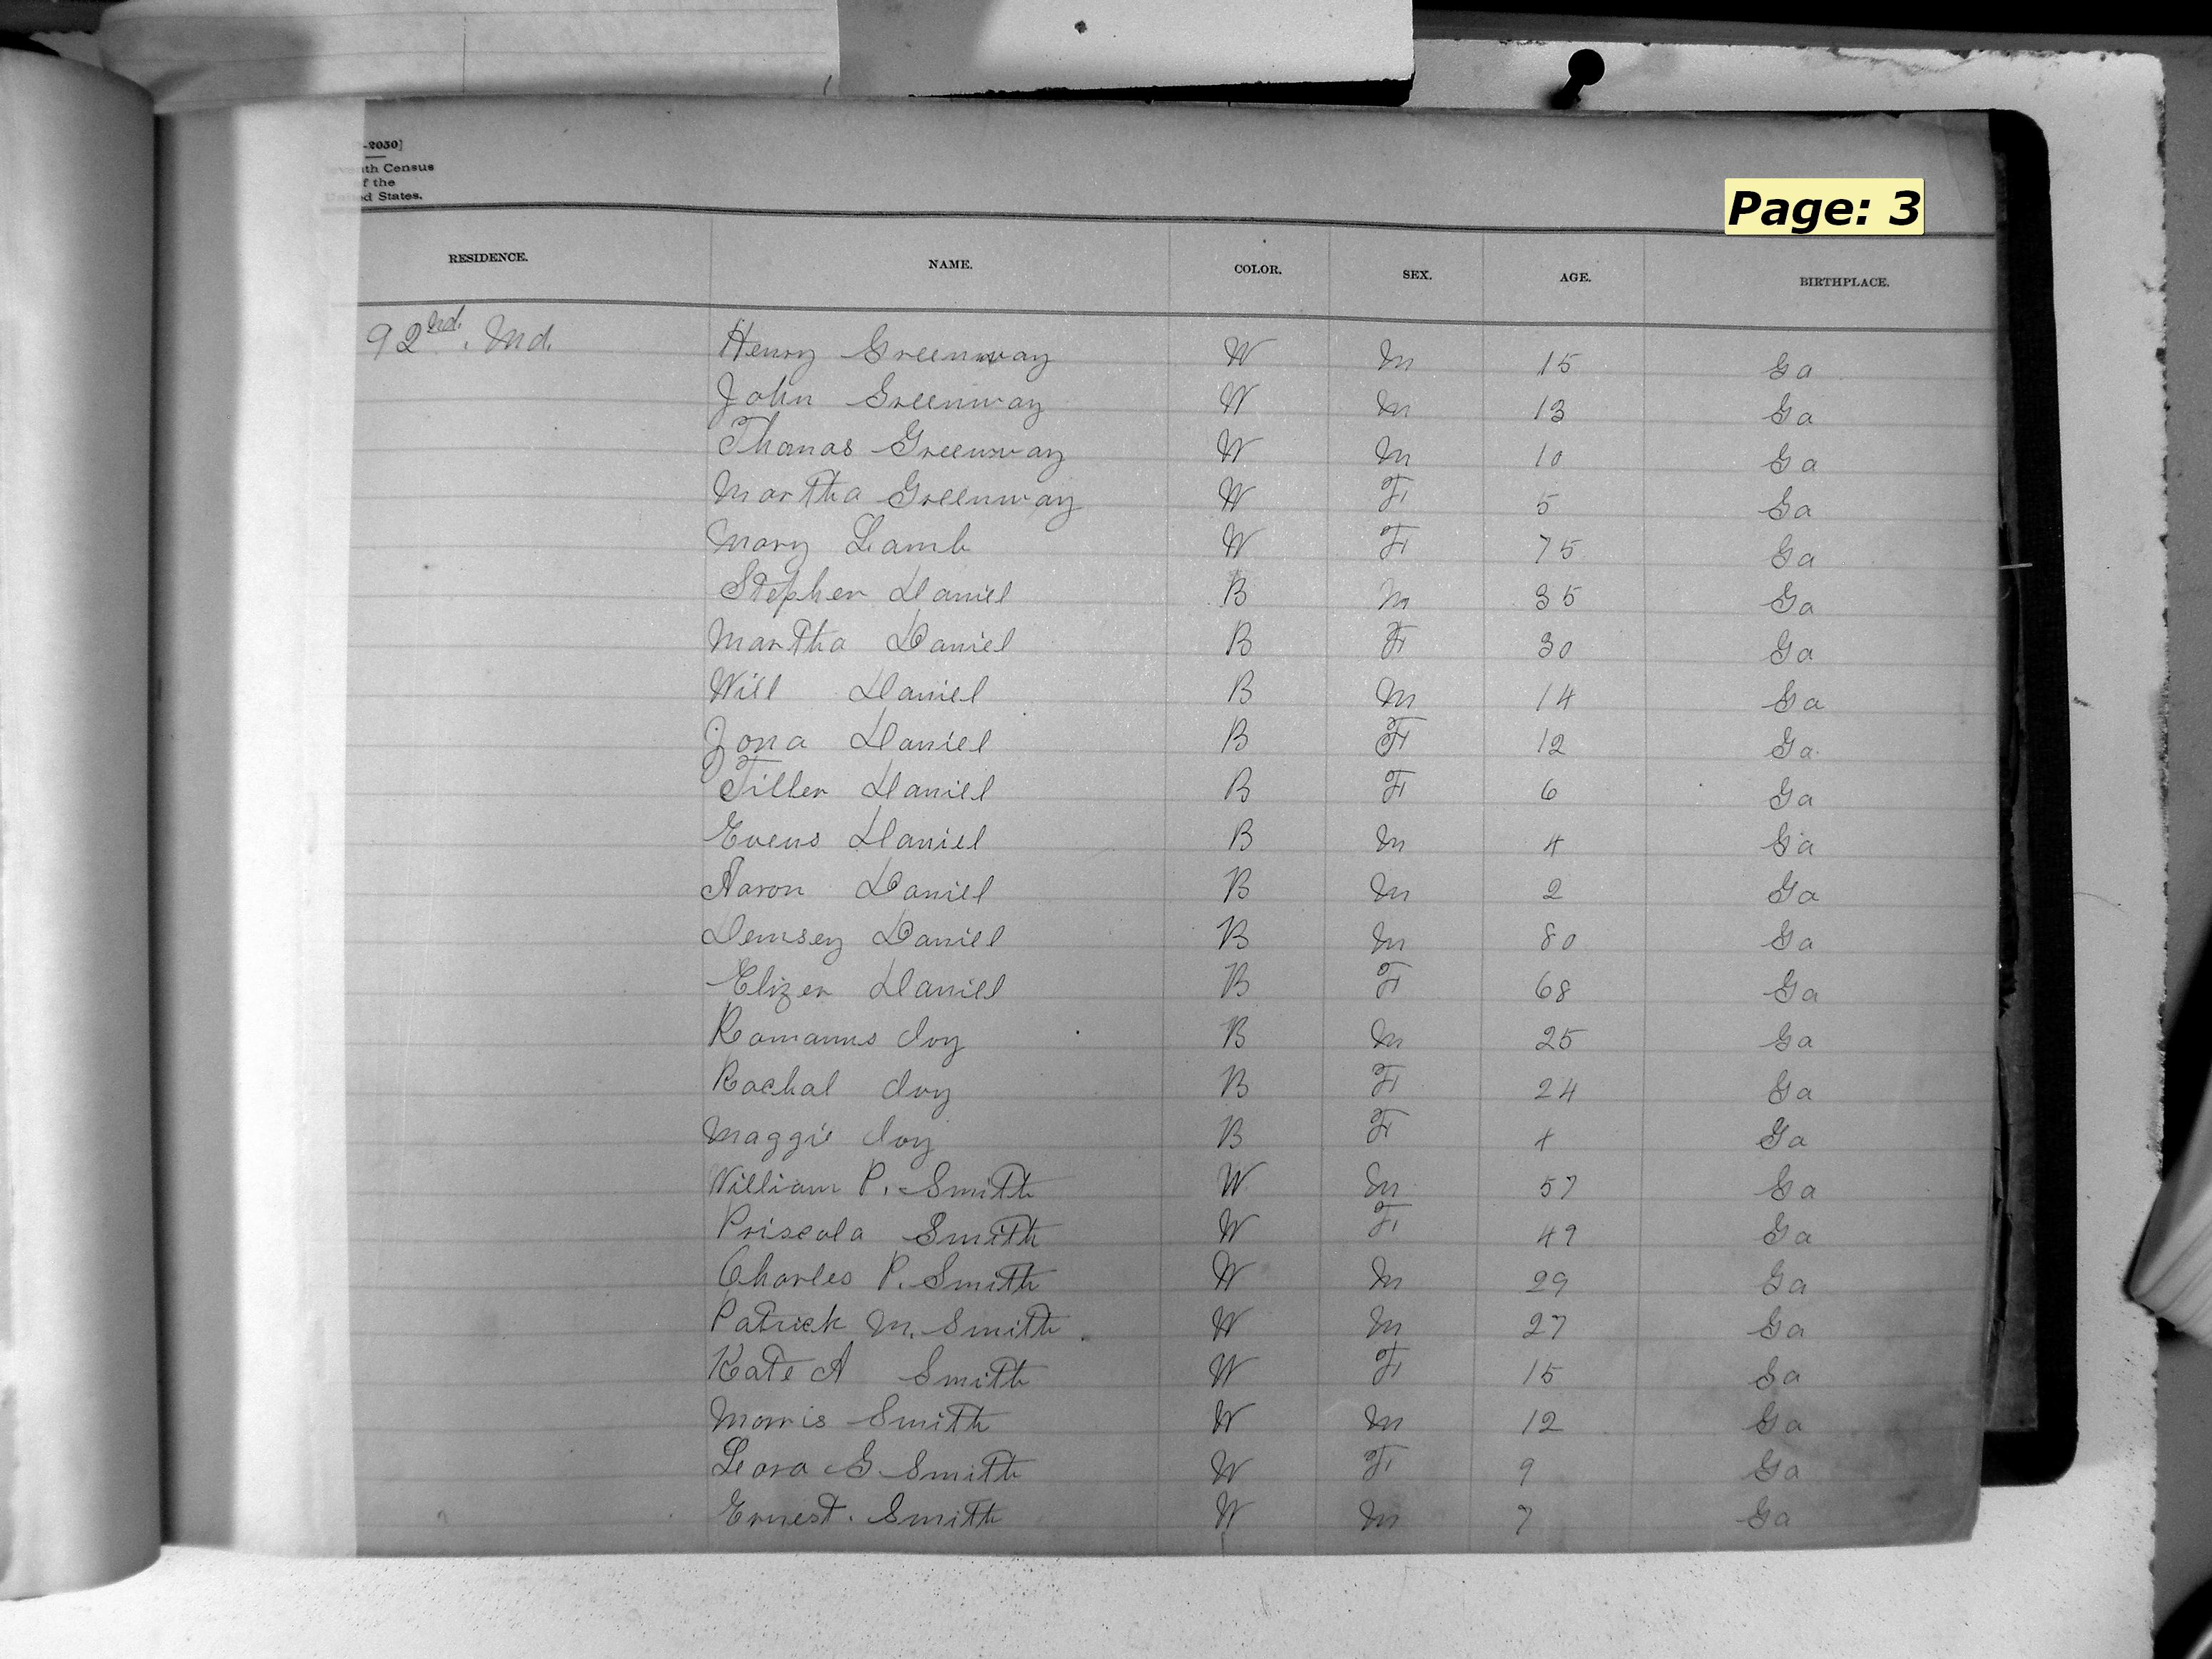 -2050]
nth Census
of the
United States.
Page: 3
RESIDENCE. NAME. COLOR. SEX. AGE. BIRTHPLACE.
92nd. Md. Henry Greenway W M 15 Ga
John Greenway W M 13 Ga
Thomas Greenway W M 10 Ga
Martha Greenway W F 5 Ga
Mary Lamb W F 75 Ga
Stephen Daniel B M 35 Ga
Martha Daniel B F 30 Ga
Will Daniel B M 14 Ga
Jona Daniel B F 12 Ga
Tiller Daniel B F 6 Ga
Evens Daniel B M 4 Ga
Aaron Daniel B M 2 Ga
Demsey Daniel B M 80 Ga
Elizer Daniel B F 68 Ga
Romanus Ivy B M 25 Ga
Rachal Ivy B F 24 Ga
Maggie Ivy B F 4 Ga
William P. Smith W M 57 Ga
Priscola Smith W F 49 Ga
Charles P. Smith W M 29 Ga
Patrick M. Smith W M 27 Ga
Kate A Smith W F 15 Ga
Morris Smith W M 12 Ga
Leora G Smith W F 9 Ga
Ernest. Smith W M 7 Ga